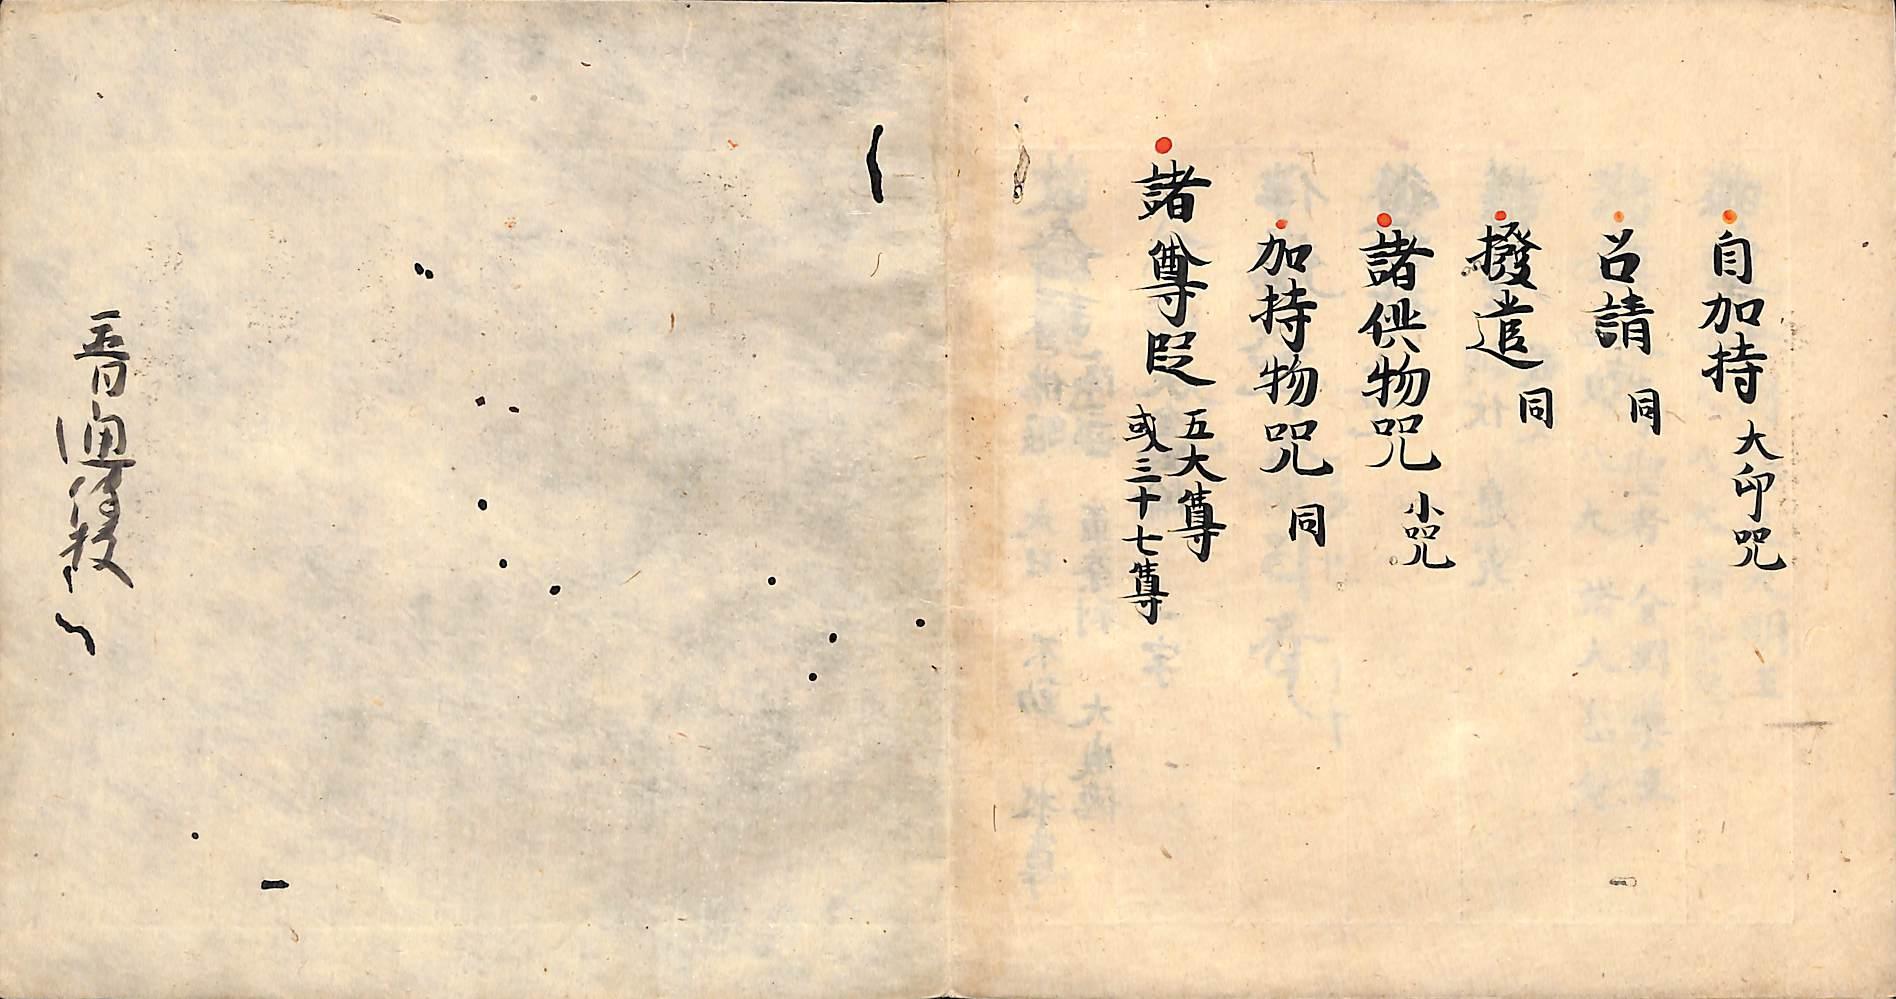 自加持 大印咒
召請 同
撥遣 同
諸供物咒 小咒
加持物咒 同
諸尊 五大尊
或三十七尊
普